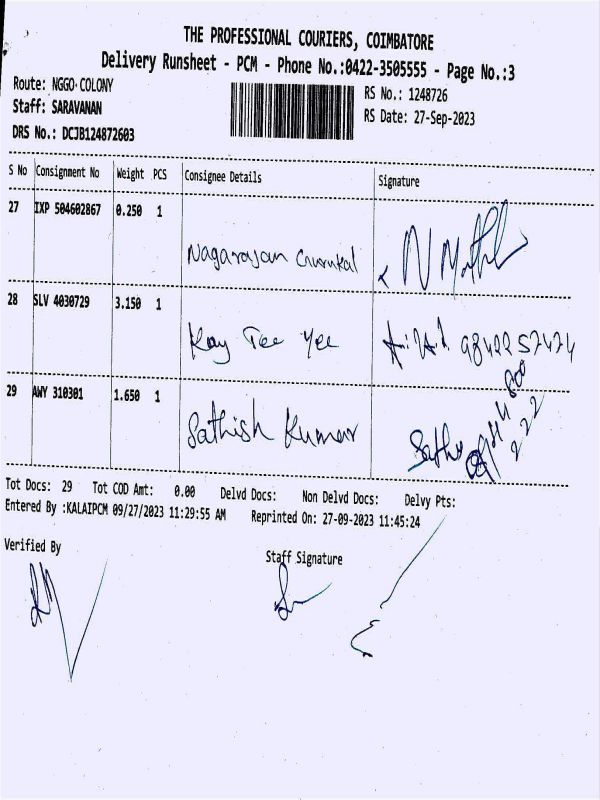 THE PROFESSIONAL COURIERS, COIMBATORE
Delivery Runsheet - PCM - Phone No.:0422-3505555 - Page No.:3
Route: NGGO COLONY
RS No.: 1248726
Staff: SARAVANAN
RS Date: 27-Sep-2023
DRS No.: DCJB124872603
S No Consignment No Weight PCS Consignee Details Signature
27 IXP 504602867 0.250 1
Nagarajan Gurukal
28 SLV 4030729 3.150 1
Kay Tee Yee 9842257474
29 AWY 310301 1.650 1
Sathish Kumar
Tot Docs: 29 Tot COD Amt: 0.00 Delvd Docs: Non Delvd Docs: Delvy Pts:
Entered By :KALAIPCM 09/27/2023 11:29:55 AM Reprinted On: 27-09-2023 11:45:24
Verified By
Staff Signature